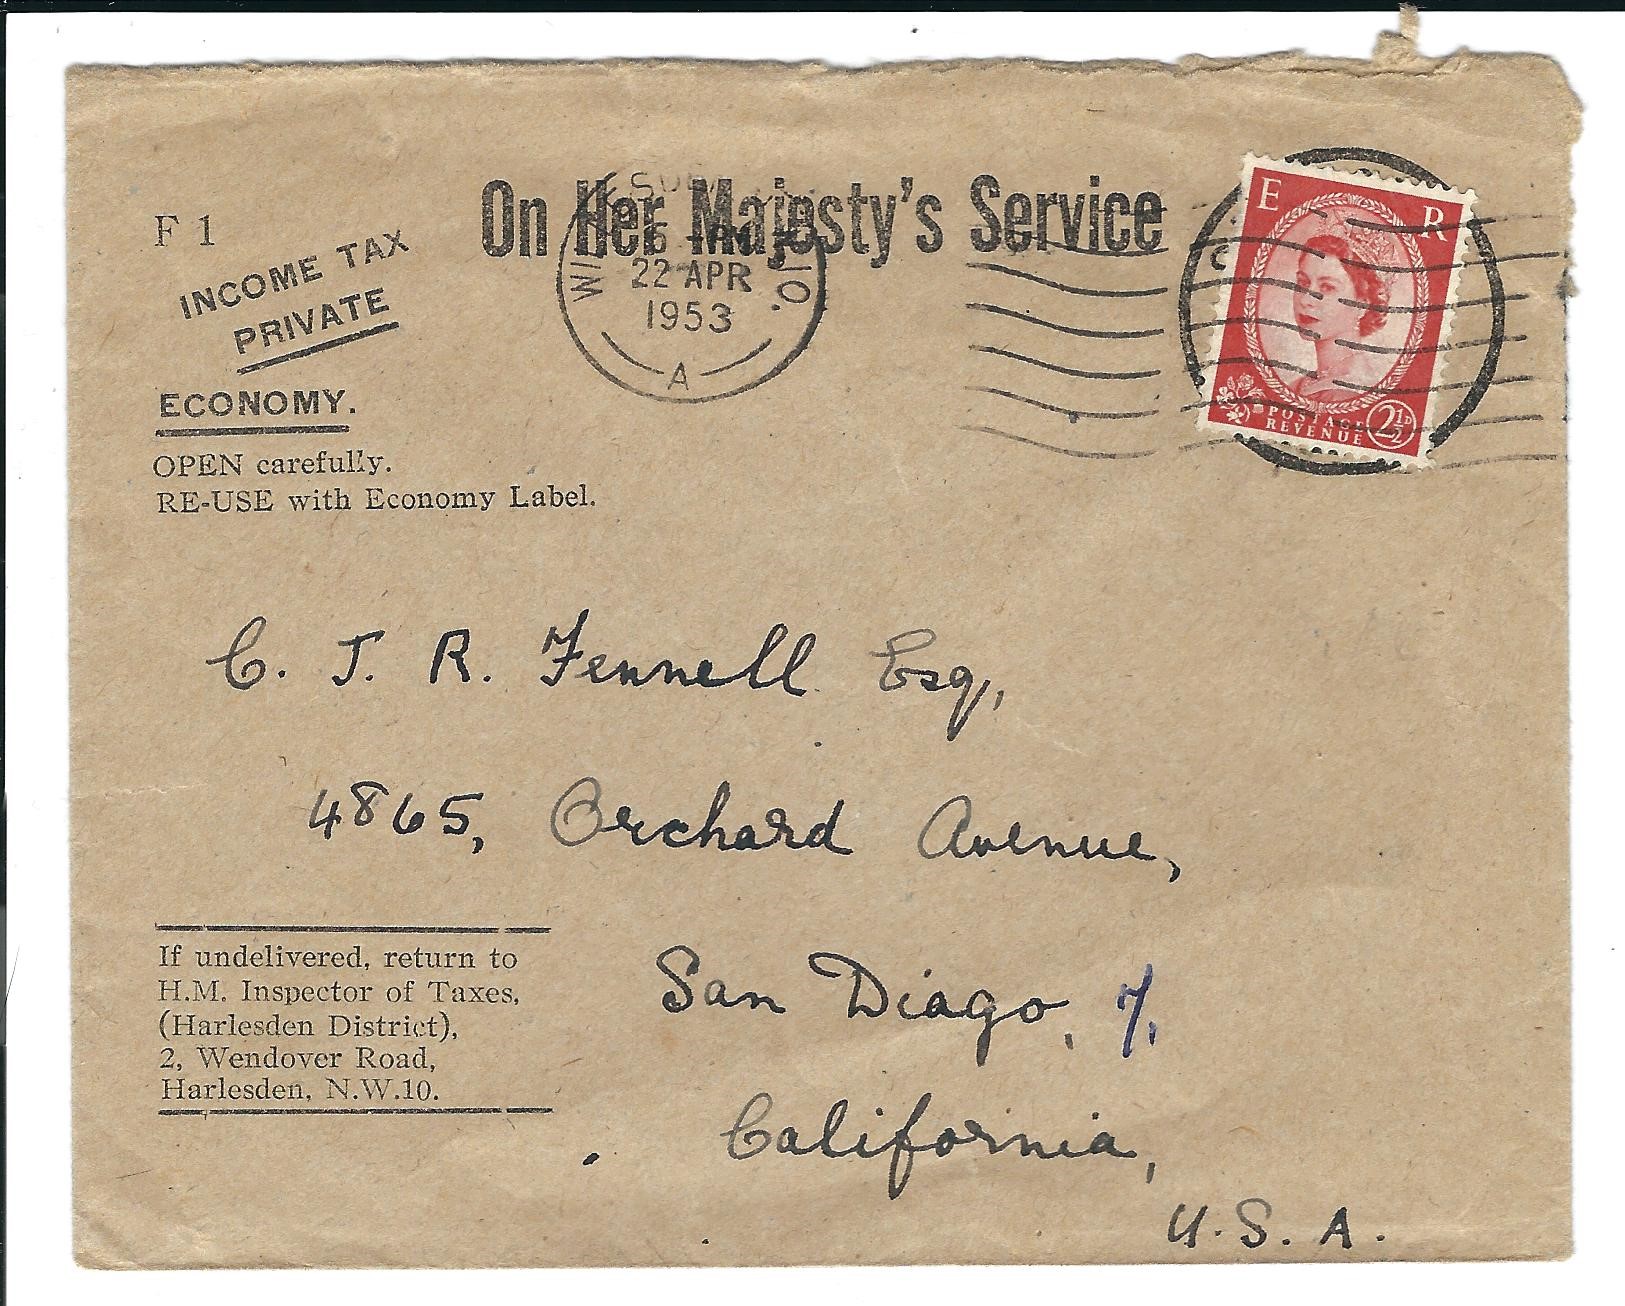 On Her Majesty's Service
F 1
INCOME TAX
PRIVATE
ECONOMY.
OPEN carefully.
RE-USE with Economy Label.
22 APR
1953
A
E R
POSTAGE
REVENUE
2½D
C. J. R. Fennell Esq,
4865, Orchard Avenue,
San Diago, 7,
California,
U. S. A.
If undelivered, return to
H.M. Inspector of Taxes,
(Harlesden District),
2, Wendover Road,
Harlesden, N.W.10.